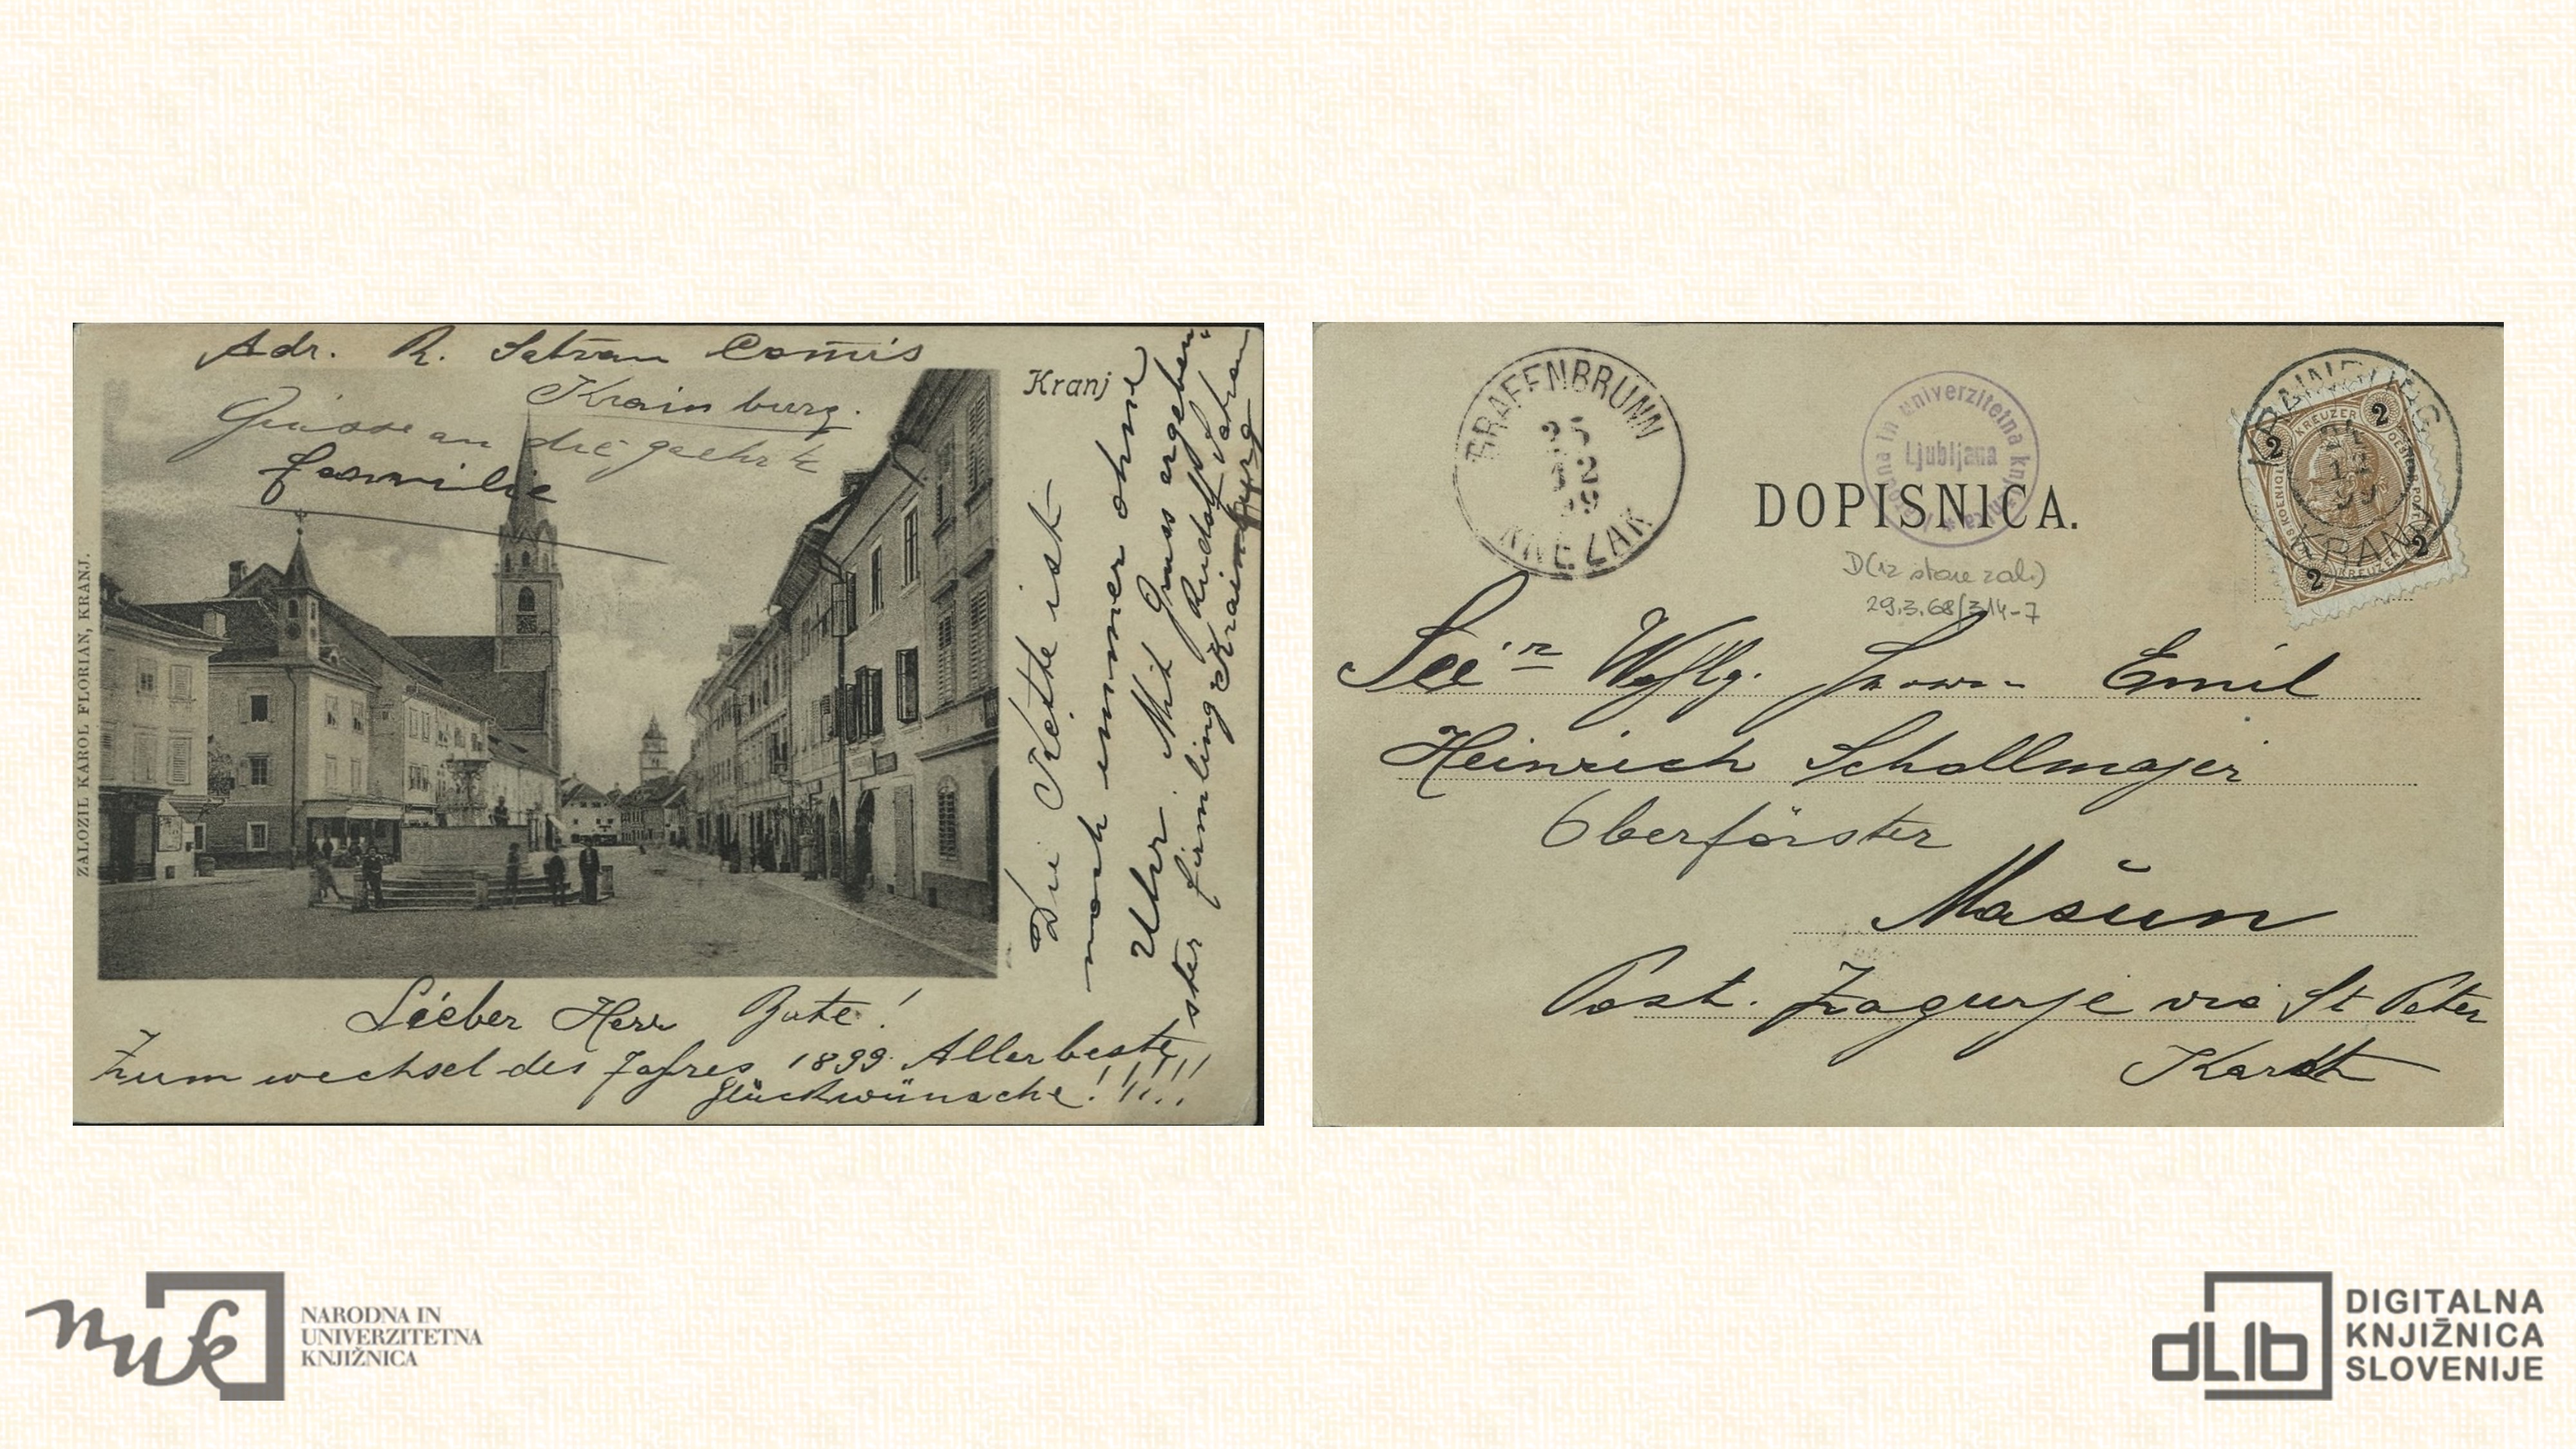 Adr. R. Satran Comis
Krainburg.
Grüsse an die geehrte
familie
Kranj
ZALOŽIL KAROL FLORIAN, KRANJ.
Die Kette ist
noch immer ohne
Uhr. Mit Gruss ergebens
ster firmling Rudolf Satran
Krainburg
Lieber Herr Pate!
Zum wechsel des Jahres 1899. Allerbeste
Glückwünsche!!!!!!
GRAFENBRUNN
25
12
99
KNEŽAK
Narodna in univerzitetna knjižnica
Ljubljana
KRAINBURG
12
99
KRANJ
2 2 2 2
KREUZER
DOPISNICA.
D(iz stare zal.)
29.3.68/314-7
Wohlg. Emil
Heinrich Schollmajer
Oberförster
Mašun
Post. Zagurje via St Peter
Karst
nuk
NARODNA IN
UNIVERZITETNA
KNJIŽNICA
dLib
DIGITALNA
KNJIŽNICA
SLOVENIJE